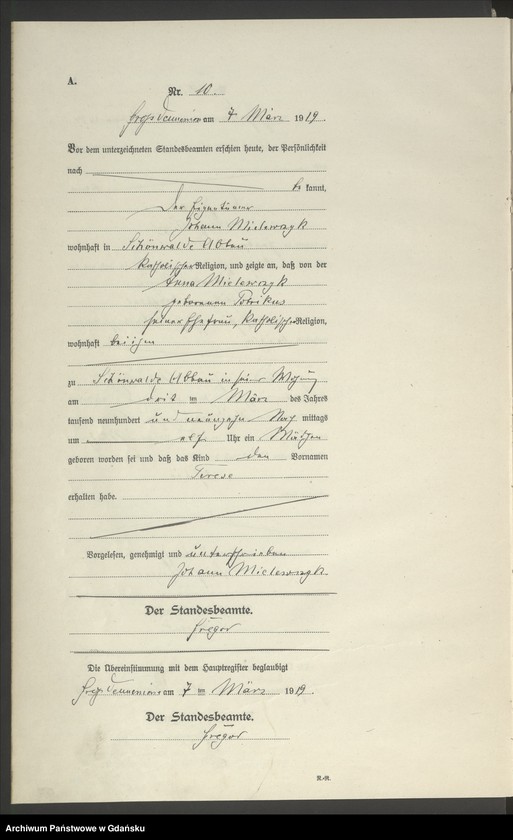 A.
Nr. 10.
am 7 März 1919.
Vor dem unterzeichneten Standesbeamten erschien heute, der Persönlichkeit
nach
be kannt,
Der Eigentümer
Johann Mielewczyk
wohnhaft in Schönwalde Abbau
katholischer Religion, und zeigte an, daß von der
Anna Mielewczyk
geborenen Potrikus
seiner Ehefrau, katholischer Religion,
wohnhaft bei ihm
zu Schönwalde Abbau in seiner Wohnung
am drit im März des Jahres
tausend neunhundert und neunzehn Nach mittags
um elf Uhr ein Mädchen
geboren worden sei und daß das Kind den Vornamen
Terese
erhalten habe.
Vorgelesen, genehmigt und unterschrieben
Johann Mielewczyk
Der Standesbeamte.
Die Übereinstimmung mit dem Hauptregister beglaubigt
am 7 im März 1919.
Der Standesbeamte.
R.-R.
Archiwum Państwowe w Gdańsku